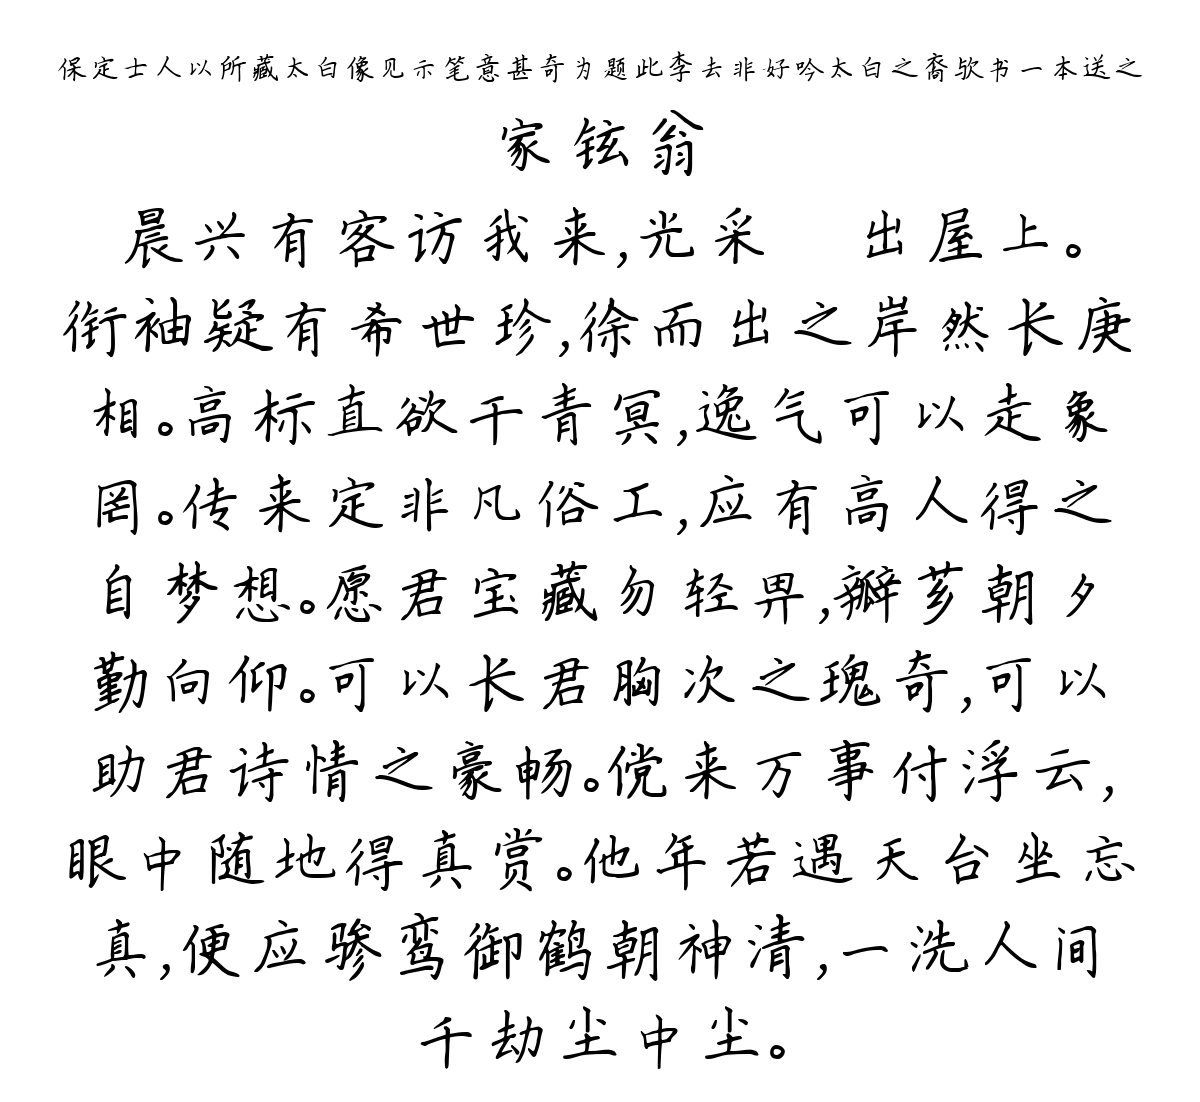 保定士人以所藏太白像见示笔意甚奇为题此李去非好吟太白之裔欤书一本送之
家铉翁
晨兴有客访我来,光采 出屋上。
衔袖疑有希世珍,徐而出之岸然长庚
相。高标直欲干青冥,逸气可以走象
罔。传来定非凡俗工,应有高人得之
自梦想。愿君宝藏勿轻畀,瓣芗朝夕
勤向仰。可以长君胸次之瑰奇,可以
助君诗情之豪畅。傥来万事付浮云,
眼中随地得真赏。他年若遇天台坐忘
真,便应骖鸾御鹤朝神清,一洗人间
千劫尘中尘。